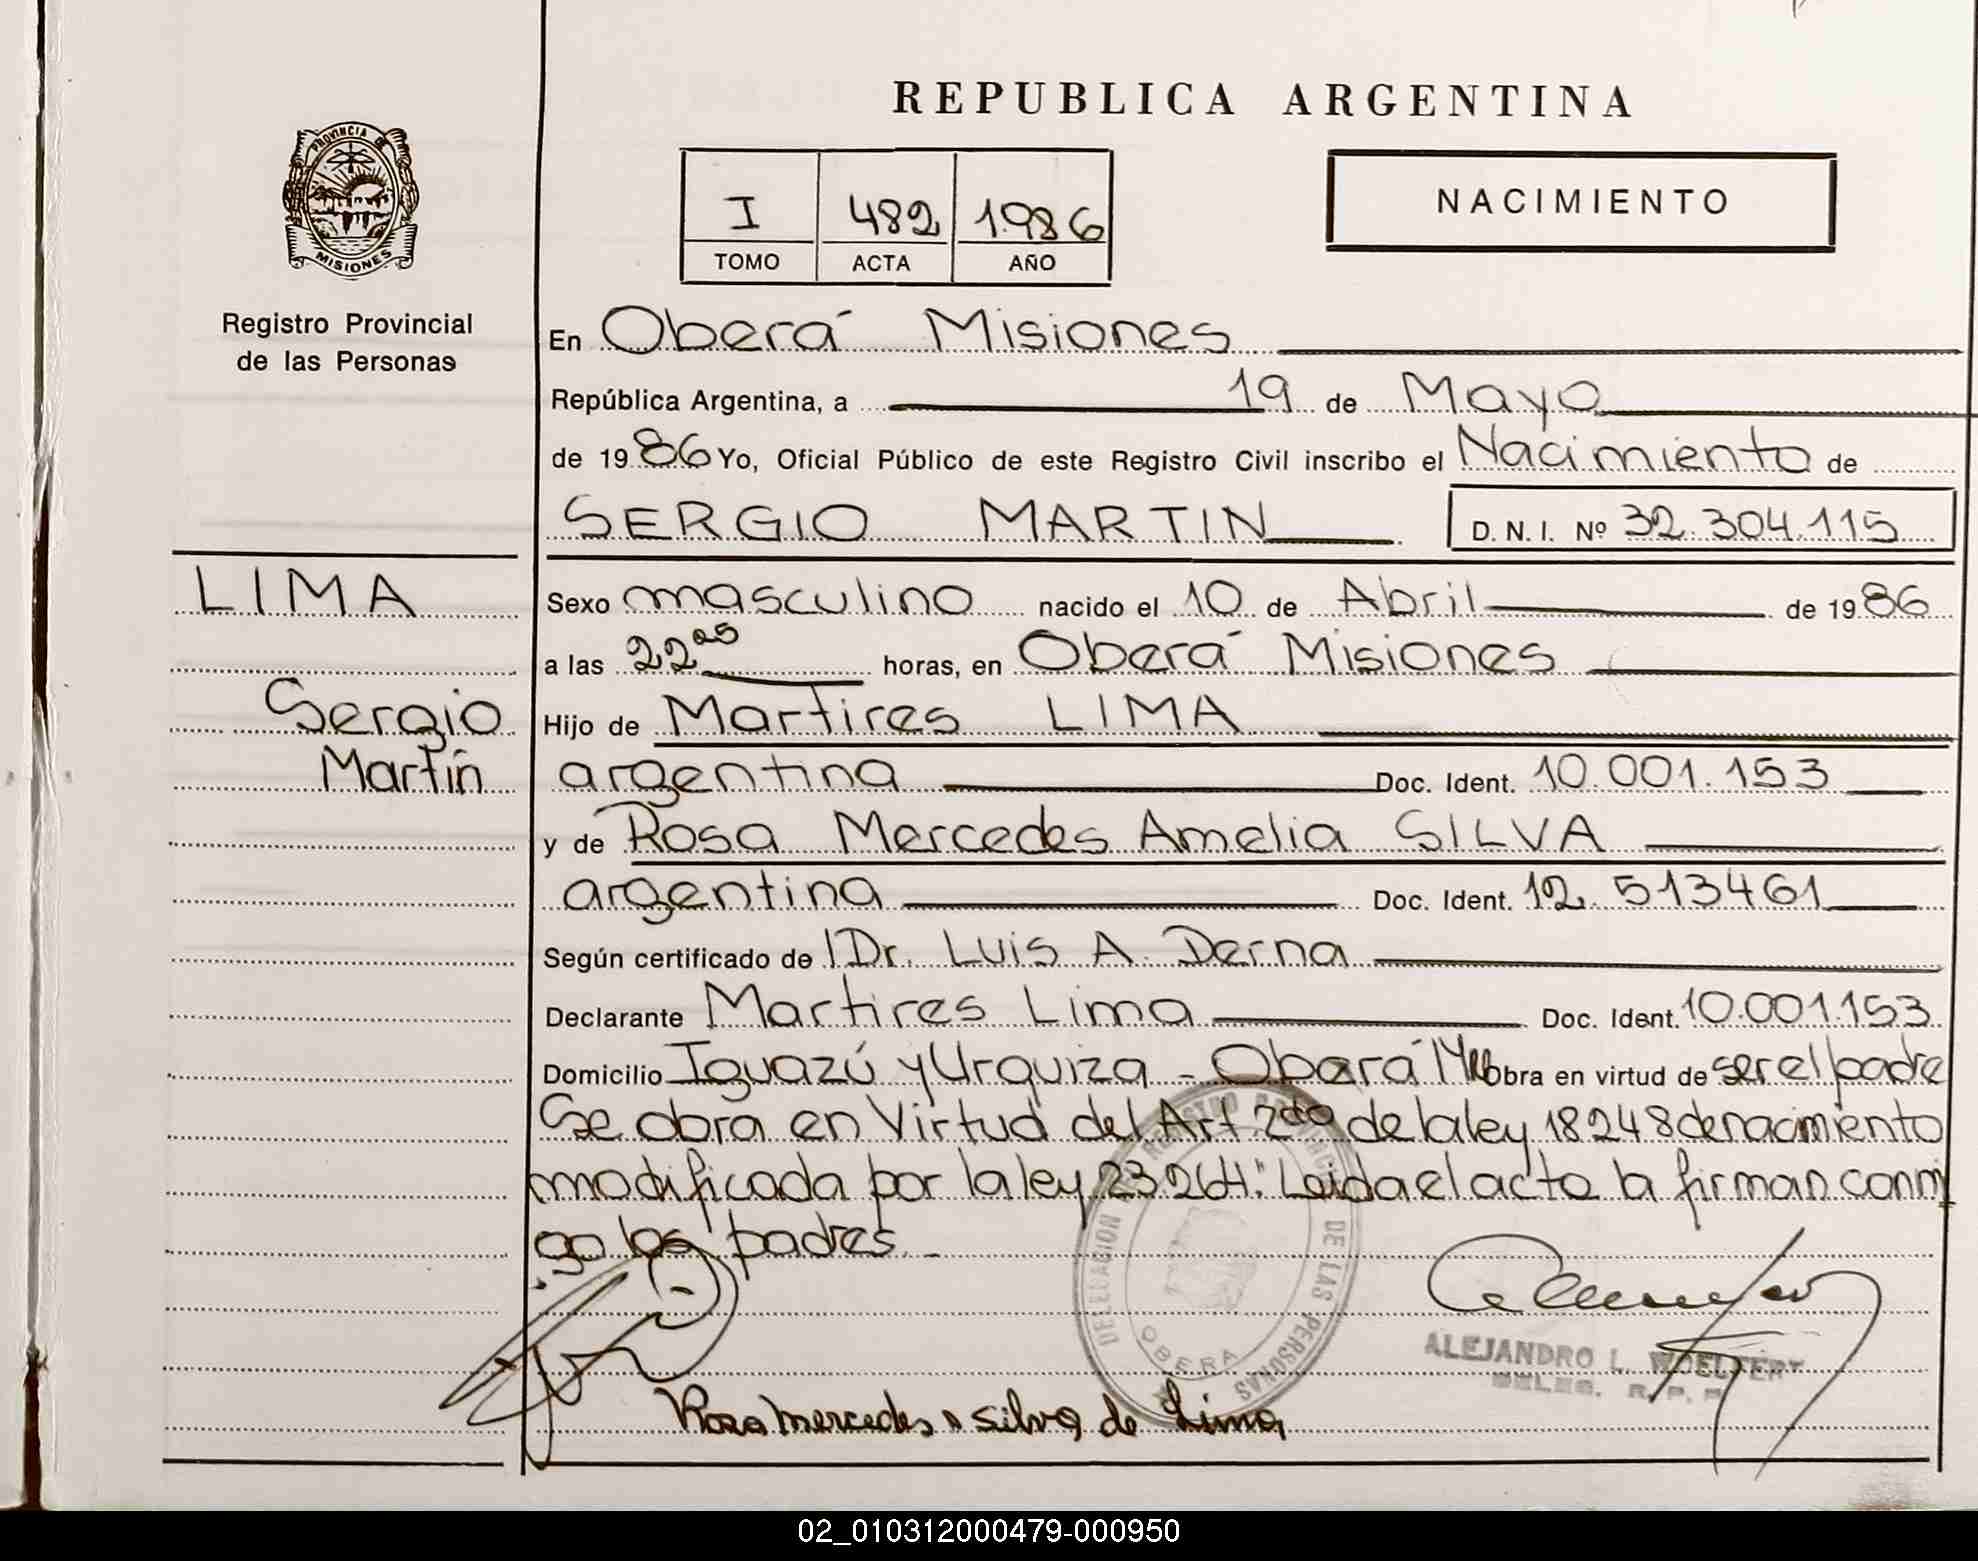 REPUBLICA ARGENTINA
PROVINCIA DE
MISIONES
I 482 1.986
TOMO ACTA AÑO
NACIMIENTO
Registro Provincial
de las Personas
En Oberá Misiones
República Argentina, a 19 de Mayo
de 1986 Yo, Oficial Público de este Registro Civil inscribo el Nacimiento de
SERGIO MARTIN D. N. I. Nº 32.304.115
LIMA
Sergio
Martín
Sexo masculino nacido el 10 de Abril de 1986
a las 22 25 horas, en Oberá Misiones
Hijo de Martires LIMA
argentina Doc. Ident. 10.001.153
y de Rosa Mercedes Amelia SILVA
argentina Doc. Ident. 12.513461
Según certificado de Dr. Luis A. Derna
Declarante Martires Lima Doc. Ident. 10.001.153
Domicilio Iguazú y Urquiza - Oberá Obra en virtud de ser el padre
Se obra en Virtud del Art 2do de la ley 18248 de nacimiento
modificada por la ley 23264." Leida el acta la firman conmi
go los padres. -
DELEGACION REGISTRO PROVINCIAL DE LAS PERSONAS
OBERA
ALEJANDRO L.
DELEG. R. P. P.
Rosa mercedes A silva de Lima
02_010312000479-000950